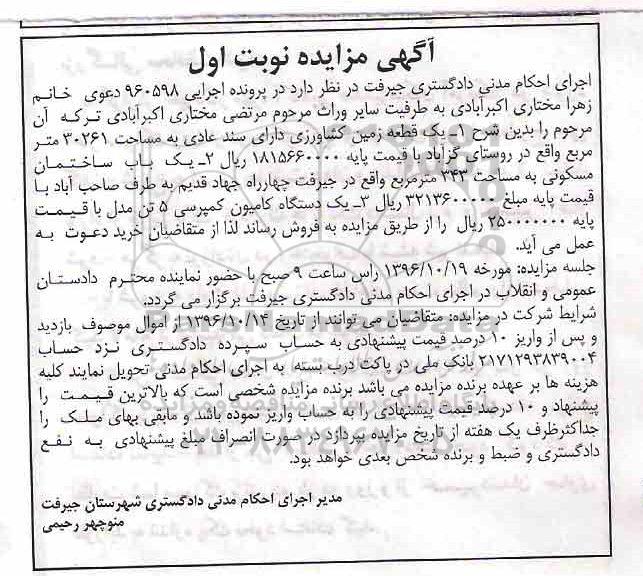 آگهی مزایده نوبت اول
اجرای احکام مدنی دادگستری جیرفت در نظر دارد در پرونده اجرایی ۹۶۰۵۹۸ دعوی خانم
زهرا مختاری اکبرآبادی به طرفیت سایر وراث مرحوم مرتضی مختاری اکبرآبادی ترکه آن
مرحوم را بدین شرح ۱ـ یک قطعه زمین کشاورزی دارای سند عادی به مساحت ۳۰۲۶۱ متر
مربع واقع در روستای گزآباد با قیمت پایه ۱۸۱۵۶۶۰۰۰۰ ریال ۲ـ یک باب ساختمان
مسکونی به مساحت ۳۴۳ مترمربع واقع در جیرفت چهارراه جهاد قدیم به طرف صاحب آباد با
قیمت پایه مبلغ ۳۲۱۳۶۰۰۰۰۰ ریال ۳ـ یک دستگاه کامیون کمپرسی ۵ تن مدل با قیمت
پایه ۲۵۰۰۰۰۰۰۰ ریال را از طریق مزایده به فروش رساند لذا از متقاضیان خرید دعوت به
عمل می آید.
جلسه مزایده: مورخه ۱۳۹۶/۱۰/۱۹ راس ساعت ۹ صبح با حضور نماینده محترم دادستان
عمومی و انقلاب در اجرای احکام مدنی دادگستری جیرفت برگزار می گردد.
شرایط شرکت در مزایده: متقاضیان می توانند از تاریخ ۱۳۹۶/۱۰/۱۴ از اموال موصوف بازدید
و پس از واریز ۱۰ درصد قیمت پیشنهادی به حساب سپرده دادگستری نزد حساب
۲۱۷۱۲۹۳۸۳۹۰۰۴ بانک ملی در پاکت درب بسته، به اجرای احکام مدنی تحویل نمایند کلیه
هزینه ها بر عهده برنده مزایده می باشد برنده مزایده شخصی است که بالاترین قیمت را
پیشنهاد و ۱۰ درصد قیمت پیشنهادی را به حساب واریز نموده باشد و مابقی بهای ملک را
حداکثرظرف یک هفته از تاریخ مزایده بپردازد در صورت انصراف مبلغ پیشنهادی به نفع
دادگستری و ضبط و برنده شخص بعدی خواهد بود.
مدیر اجرای احکام مدنی دادگستری شهرستان جیرفت
منوچهر رحیمی